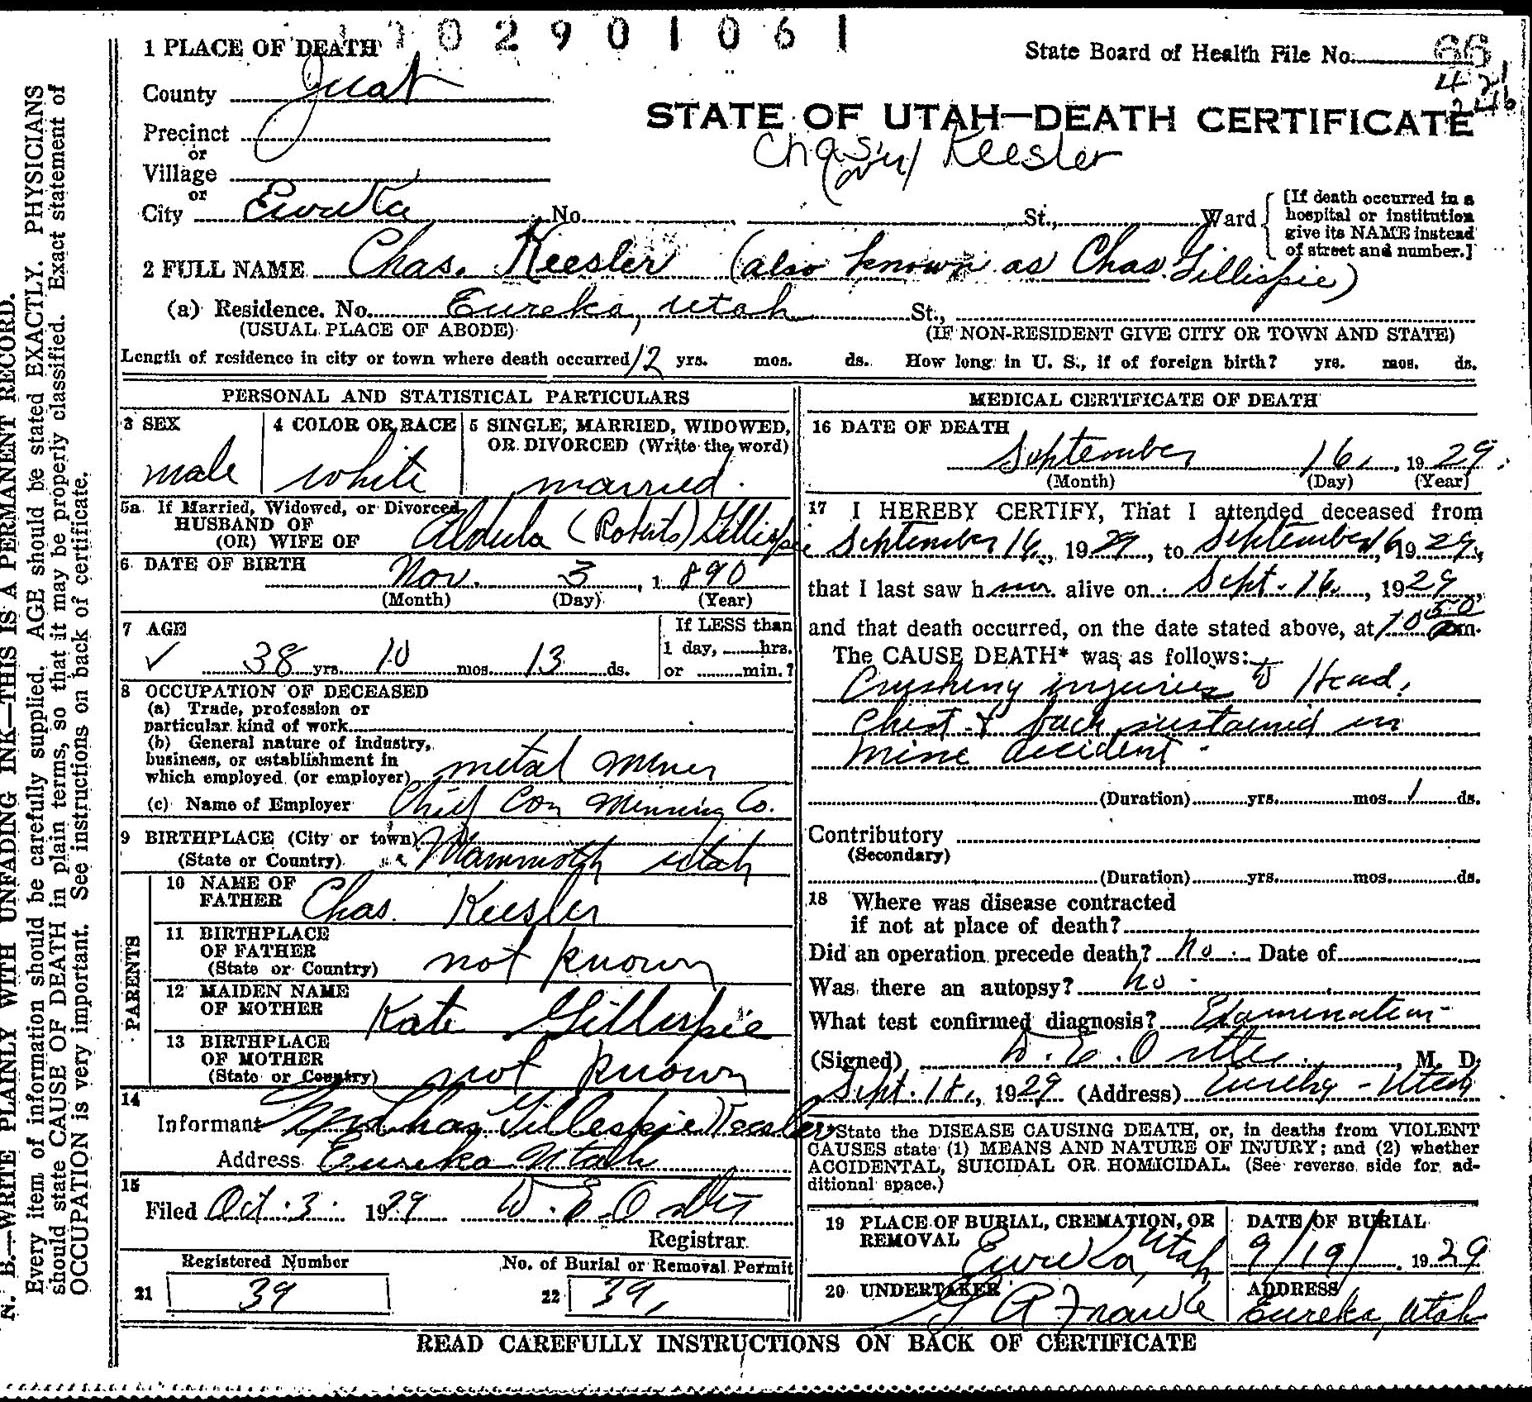 1 PLACE OF DEATH
2901061
State Board of Health File No. 66
4
246
County Juab
STATE OF UTAH—DEATH CERTIFICATE
Precinct
or
Chas. Keesler
Village
or
City Eureka No. St., Ward
[If death occurred in a hospital or institution give its NAME instead of street and number.]
2 FULL NAME Chas. Keesler (also known as Chas Gillispie)
(a) Residence. No. Eureka, Utah St.,
(USUAL PLACE OF ABODE) (IF NON-RESIDENT GIVE CITY OR TOWN AND STATE)
Length of residence in city or town where death occurred 12 yrs. mos. ds. How long in U. S., if of foreign birth? yrs. mos. ds.
PERSONAL AND STATISTICAL PARTICULARS
3 SEX
male
4 COLOR OR RACE
white
5 SINGLE, MARRIED, WIDOWED,
OR DIVORCED (Write the word)
married.
5a If Married, Widowed, or Divorced
HUSBAND OF
(OR) WIFE OF (Roberts) Gillispie
6 DATE OF BIRTH Nov. 3, 1890
(Month) (Day) (Year)
7 AGE
✓ 38 yrs. 10 mos. 13 ds.
If LESS than
1 day, hrs.
or min.?
8 OCCUPATION OF DECEASED
(a) Trade, profession or
particular kind of work
(b) General nature of industry,
business, or establishment in
which employed (or employer) metal Miner
(c) Name of Employer Chief Con Minning Co.
9 BIRTHPLACE (City or town)
(State or Country) Mammoth Utah
PARENTS
10 NAME OF
FATHER Chas. Keesler
11 BIRTHPLACE
OF FATHER
(State or Country) not known
12 MAIDEN NAME
OF MOTHER Kate Gillespie
13 BIRTHPLACE
OF MOTHER
(State or Country) not known
14
Informant Mrs Chas Gillespie Keesler
Address Eureka Utah
15
Filed Oct. 3. 1929
Registrar
Registered Number
21 39
No. of Burial or Removal Permit
22 39,
MEDICAL CERTIFICATE OF DEATH
16 DATE OF DEATH
September 16, 1929.
(Month) (Day) (Year)
17 I HEREBY CERTIFY, That I attended deceased from
September 16, 1929, to September 16, 1929,
that I last saw him alive on Sept. 16, 1929,
and that death occurred, on the date stated above, at 10 50 m.
The CAUSE DEATH* was as follows:
Crushing injuries to Head,
Chest & back sustained in
mine accident.
(Duration) yrs. mos. 1 ds.
Contributory
(Secondary)
(Duration) yrs. mos. ds.
18 Where was disease contracted
if not at place of death?
Did an operation precede death? no. Date of
Was there an autopsy? no.
What test confirmed diagnosis? Examination
(Signed) , M. D.
Sept. 18, 1929 (Address) Eureka - Utah
State the DISEASE CAUSING DEATH, or, in deaths from VIOLENT
CAUSES state (1) MEANS AND NATURE OF INJURY; and (2) whether
ACCIDENTAL, SUICIDAL OR HOMICIDAL. (See reverse side for ad-
ditional space.)
19 PLACE OF BURIAL, CREMATION, OR
REMOVAL Eureka, Utah
DATE OF BURIAL
9/19/ 1929
20 UNDERTAKER
ADDRESS
Eureka, Utah
READ CAREFULLY INSTRUCTIONS ON BACK OF CERTIFICATE
N. B.—WRITE PLAINLY WITH UNFADING INK—THIS IS A PERMANENT RECORD.
Every item of information should be carefully supplied. AGE should be stated EXACTLY. PHYSICIANS
should state CAUSE OF DEATH in plain terms, so that it may be properly classified. Exact statement of
OCCUPATION is very important. See instructions on back of certificate.